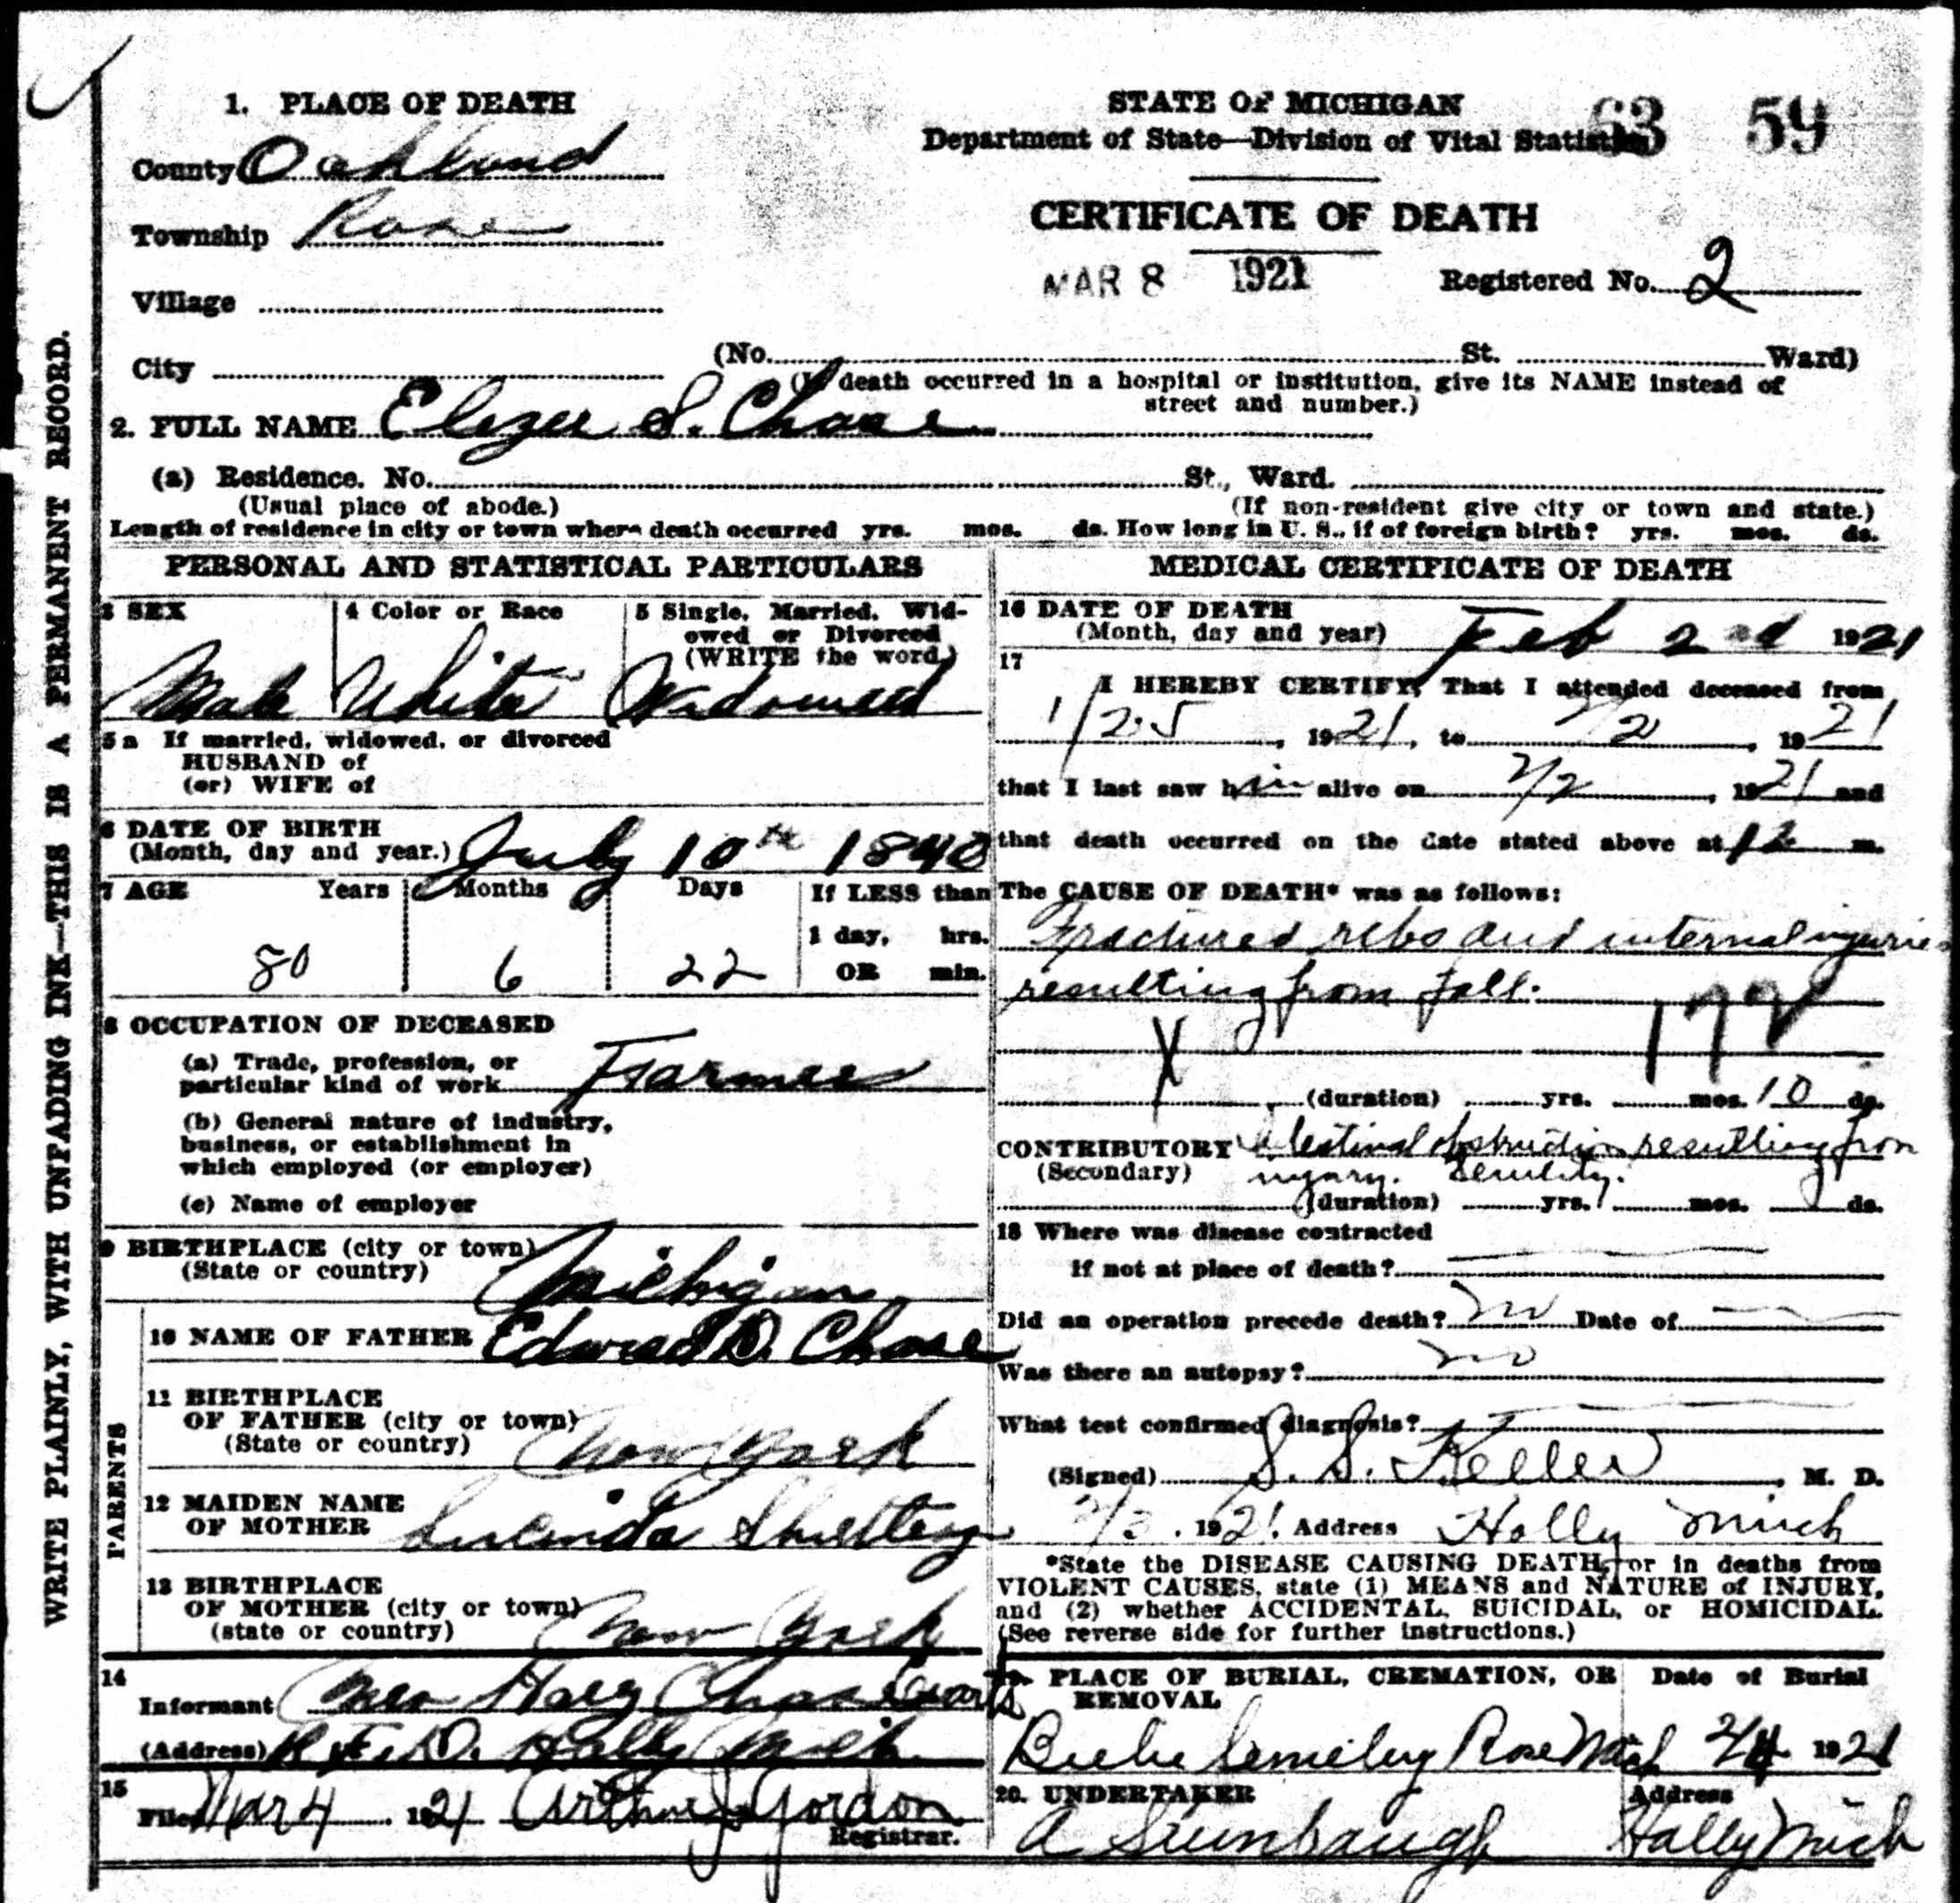 1. PLACE OF DEATH
STATE OF MICHIGAN
63 59
Department of State—Division of Vital Statistics
County Oakland
Township Rose
CERTIFICATE OF DEATH
MAR 8 1921
Registered No. 2
Village
City
(No. St. Ward)
(If death occurred in a hospital or institution, give its NAME instead of
street and number.)
2. FULL NAME Elezer S. Chase
(a) Residence. No. St., Ward.
(Usual place of abode.)
(If non-resident give city or town and state.)
Length of residence in city or town where death occurred yrs. mos. ds. How long in U. S., if of foreign birth? yrs. mos. ds.
WRITE PLAINLY, WITH UNFADING INK—THIS IS A PERMANENT RECORD.
PERSONAL AND STATISTICAL PARTICULARS
3 SEX
4 Color or Race
5 Single, Married, Wid-
owed or Divorced
(WRITE the word.)
Male White Widowed
5a If married, widowed, or divorced
HUSBAND of
(or) WIFE of
6 DATE OF BIRTH
(Month, day and year.) July 10th 1840
7 AGE Years Months Days If LESS than
1 day, hrs.
80 6 22 OR min.
8 OCCUPATION OF DECEASED
(a) Trade, profession, or
particular kind of work Farmer
(b) General nature of industry,
business, or establishment in
which employed (or employer)
(c) Name of employer
9 BIRTHPLACE (city or town)
(State or country) Michigan
PARENTS
10 NAME OF FATHER Edward D. Chase
11 BIRTHPLACE
OF FATHER (city or town)
(State or country) New York
12 MAIDEN NAME
OF MOTHER Lucinda
13 BIRTHPLACE
OF MOTHER (city or town)
(state or country) New York
14
Informant Mrs Chase
(Address) R.F.D. Holly Mich
15
Filed Mar 4 1921 Arthur J Gordon
Registrar.
MEDICAL CERTIFICATE OF DEATH
16 DATE OF DEATH
(Month, day and year) Feb 2nd 1921
17
I HEREBY CERTIFY, That I attended deceased from
1/25, 1921, to 2/2, 1921
that I last saw him alive on 2/2, 1921 and
that death occurred on the date stated above at 12 m.
The CAUSE OF DEATH* was as follows:
Fractured ribs and internal injuries
resulting from fall.
X
(duration) yrs. mos. 10 ds.
CONTRIBUTORY Intestinal obstruction resulting from
(Secondary) injury. Senility.
(duration) yrs. mos. ds.
18 Where was disease contracted
If not at place of death?
Did an operation precede death? no Date of
Was there an autopsy? no
What test confirmed diagnosis?
(Signed) S. S. Keller, M. D.
2/3, 1921. Address Holly Mich
*State the DISEASE CAUSING DEATH, or in deaths from
VIOLENT CAUSES, state (1) MEANS and NATURE of INJURY,
and (2) whether ACCIDENTAL, SUICIDAL, or HOMICIDAL.
(See reverse side for further instructions.)
19. PLACE OF BURIAL, CREMATION, OR
REMOVAL
Date of Burial
Beebe Cemetery Rose Mich 2/4 1921
20. UNDERTAKER
Address
A Holly Mich